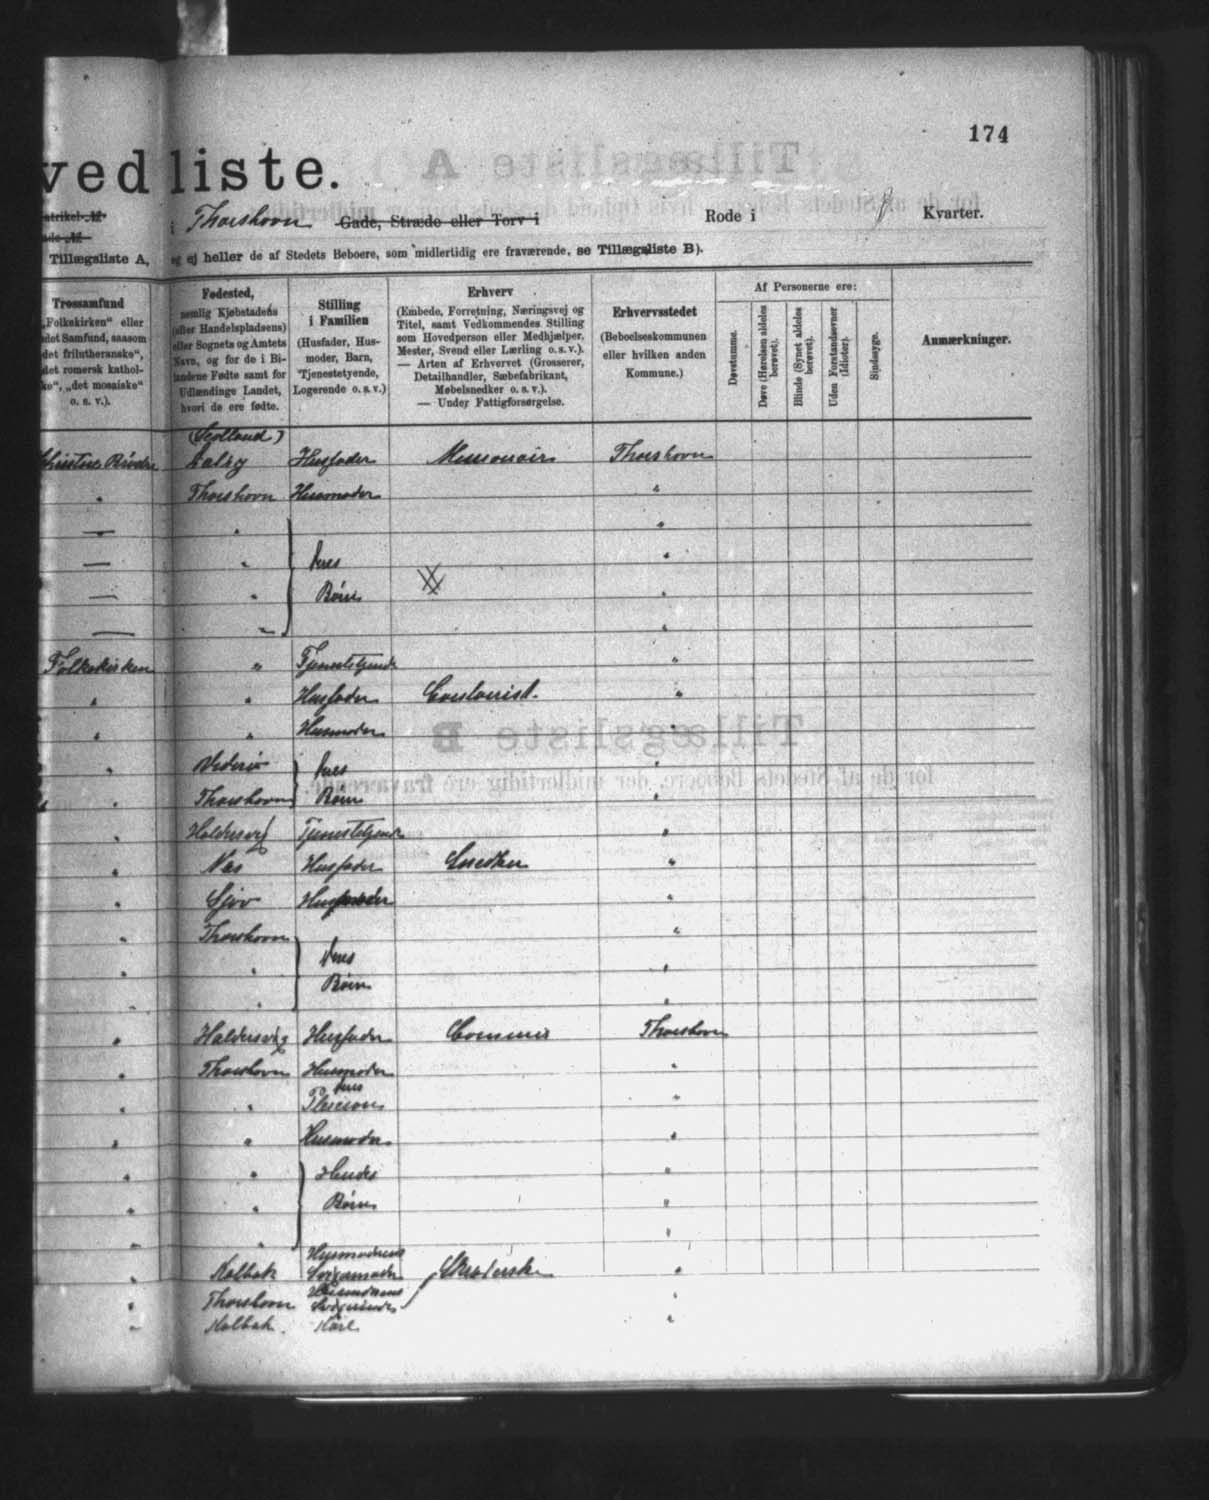 174
vedliste.
i Thorshavn Gade, Stræde eller Torv i Rode i Kvarter.
Tillægsliste A, og ej heller de af Stedets Beboere, som midlertidig ere fraværende, se Tillægsliste B).
Trossamfund
„Folkekirken“ eller
det Samfund, saasom
„det frilutheranske“,
„det romersk kathol-
ke“, „det mosaiske“
o. s. v.).
Fødested,
nemlig Kjøbstadens
(eller Handelspladsens)
eller Sognets og Amtets
Navn, og for de i Bi-
landene Fødte samt for
Udlændinge Landet,
hvori de ere fødte.
Stilling
i Familien
(Husfader, Hus-
moder, Barn,
Tjenestetyende,
Logerende o. s. v.)
Erhverv
(Embede, Forretning, Næringsvej og
Titel, samt Vedkommendes Stilling
som Hovedperson eller Medhjælper,
Mester, Svend eller Lærling o. s. v.).
— Arten af Erhvervet (Grosserer,
Detailhandler, Sæbefabrikant,
Møbelsnedker o. s. v.).
— Under Fattigforsørgelse.
Erhvervsstedet
(Beboelseskommunen
eller hvilken anden
Kommune.)
Af Personerne ere:
Døvstumme.
Døve (Hørelsen aldeles
berøvet).
Blinde (Synet aldeles
berøvet).
Uden Forstandsevner
(Idioter).
Sindssyge.
Anmærkninger.
(Scotland)
Husfader Missionair Thorshavn
" Thorshavn Husmoder "
— " "
— " deres "
— " Børn "
— " "
Folkekirken " Tjenestetyende "
" " Husfader "
" " Husmoder "
" deres "
" Thorshavn Børn "
" Haldersvig Tjenestetyende "
" Næs Husfader Snedker "
" Husmoder "
" Thorshavn "
" " deres "
" Børn "
" Haldersvig Husfader Commis Thorshavn
" Thorshavn Husmoder "
deres
" " Plejesøn "
" " Husmoder "
" " Hendes "
" " Børn "
" " "
Husmoderens
" Kalbak Svigermoder "
Husmoderens
" Thorshavn Svigerinde "
" Kalbak Karl "